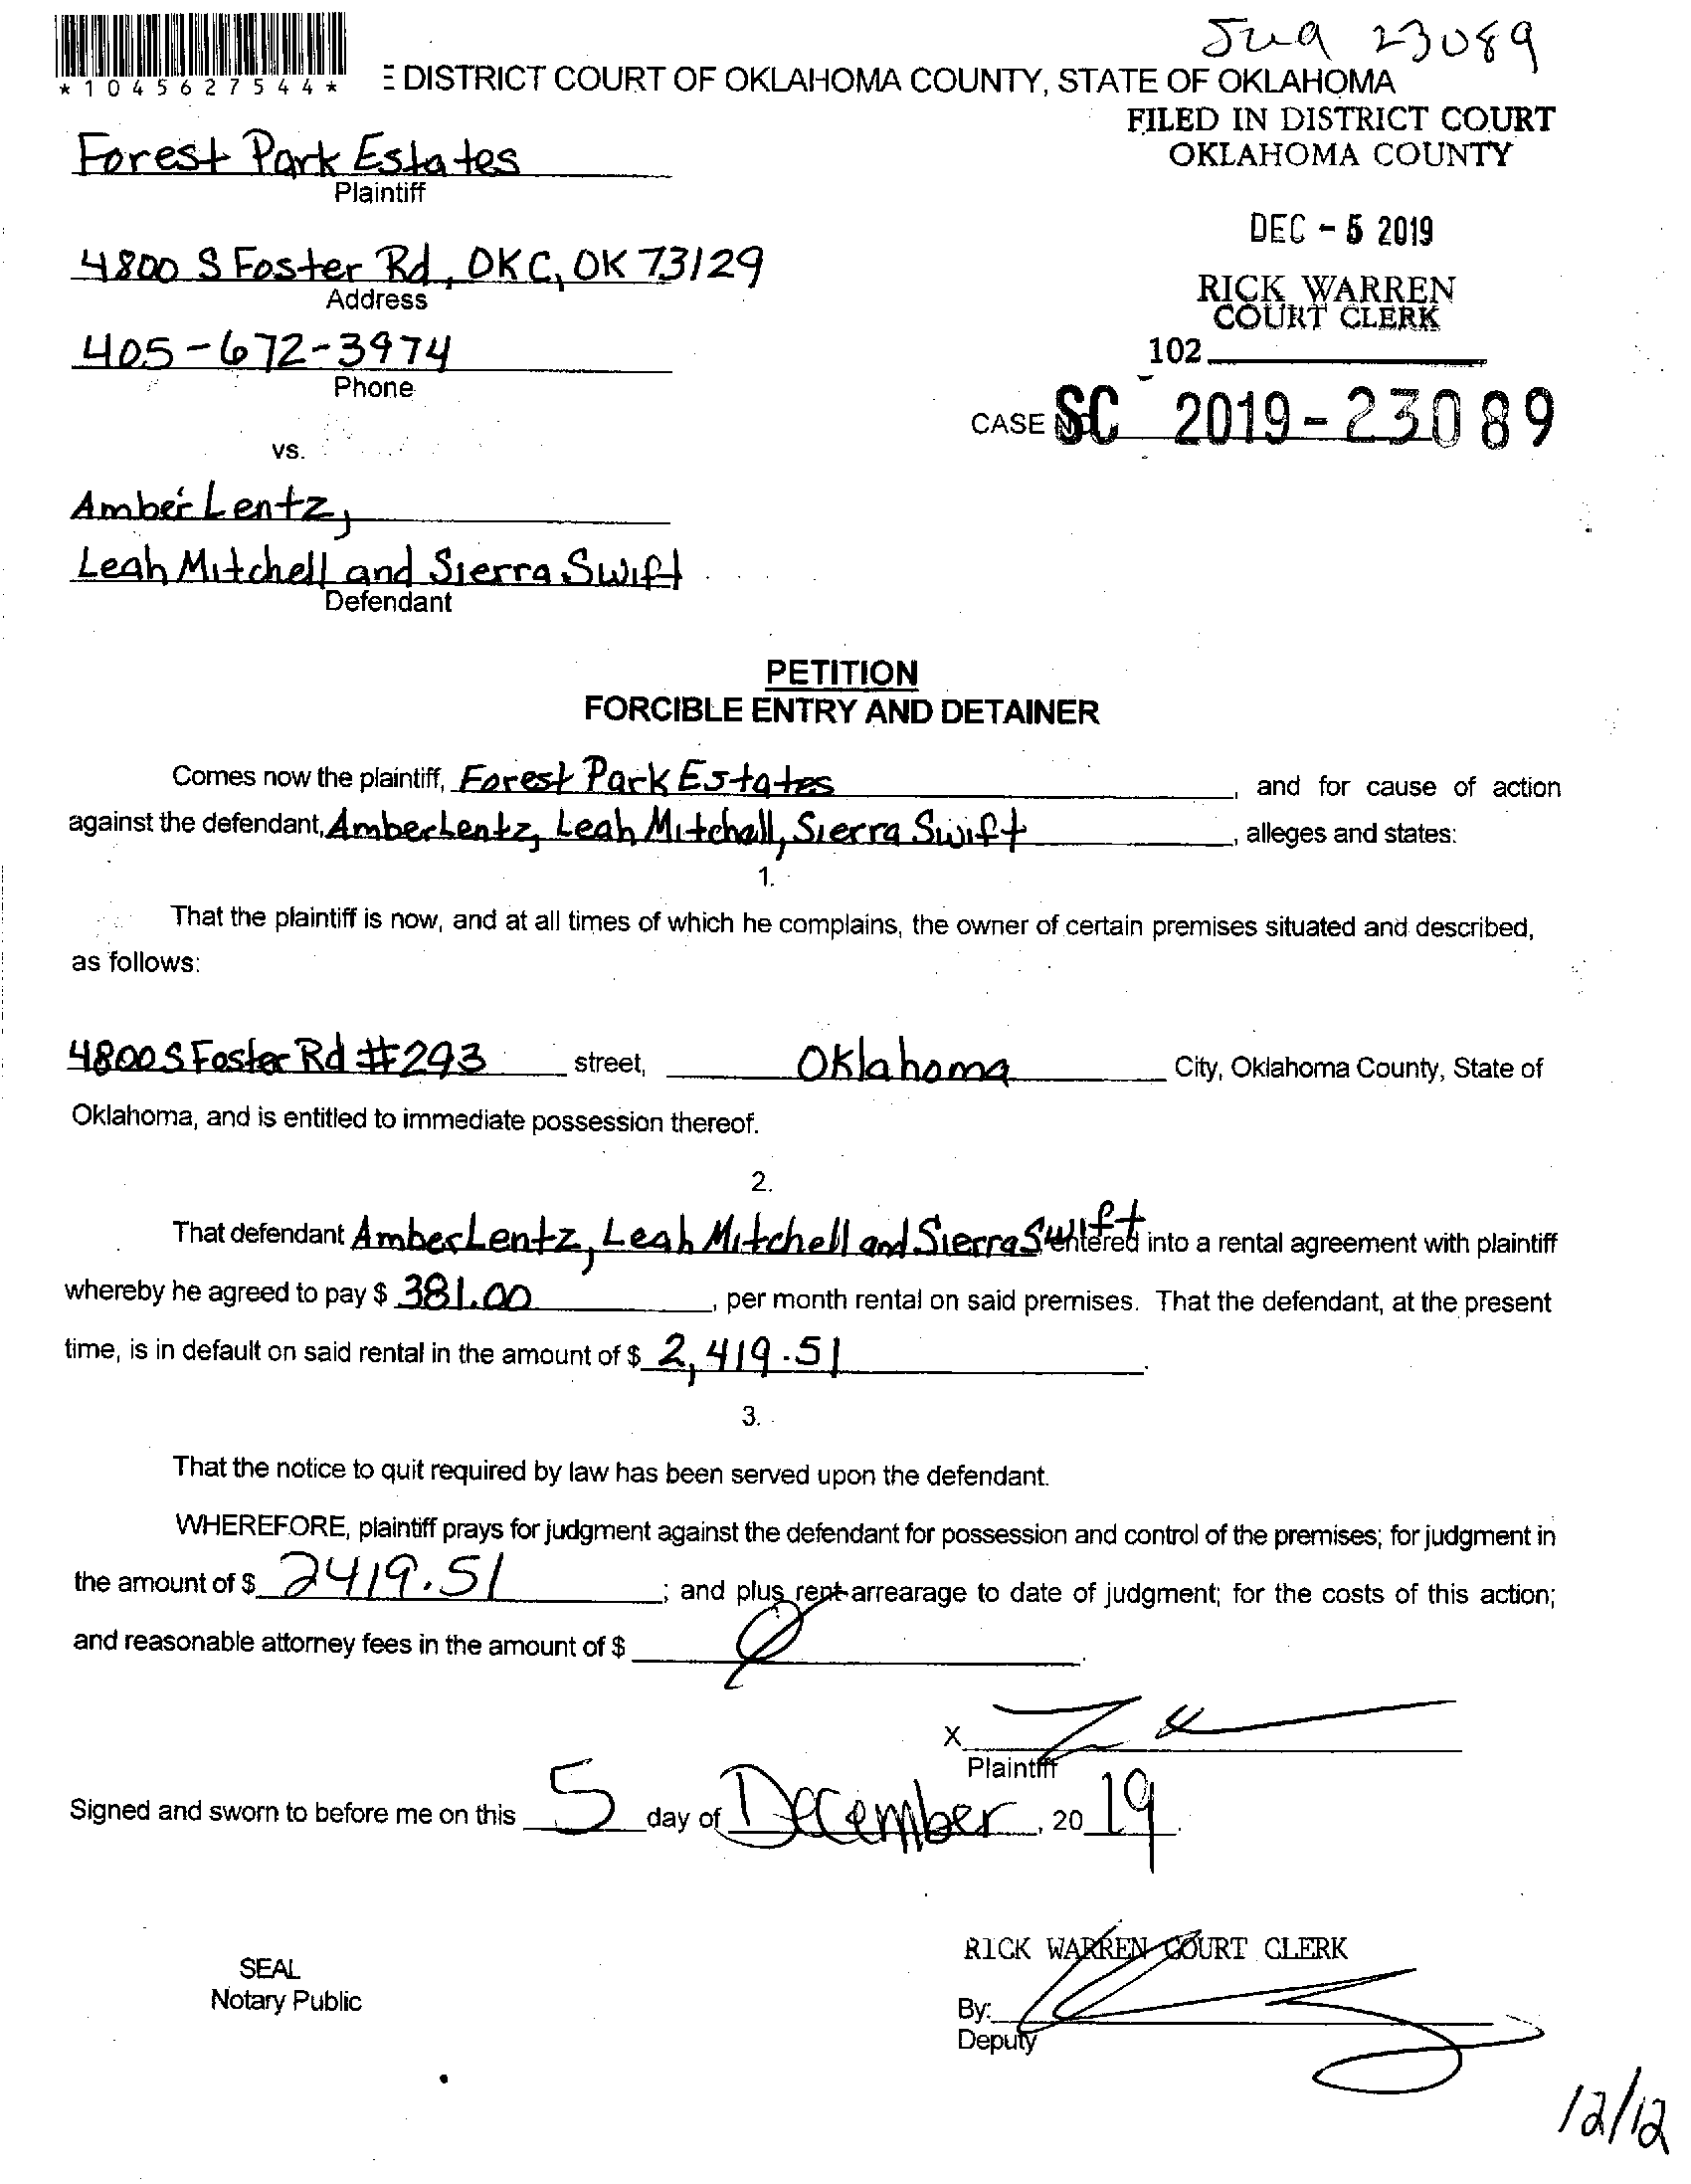 Jug 23089
*1045627544*
E DISTRICT COURT OF OKLAHOMA COUNTY, STATE OF OKLAHOMA
FILED IN DISTRICT COURT
OKLAHOMA COUNTY
Forest Park Estates
Plaintiff
DEC - 5 2019
4800 S Foster Rd, OKC, OK 73129
Address
RICK WARREN
COURT CLERK
405-672-3974
Phone
102
CASE NO. SC 2019-23089
vs.
Amber Lentz,
Leah Mitchell and Sierra Swift
Defendant
PETITION
FORCIBLE ENTRY AND DETAINER
Comes now the plaintiff, Forest Park Estates, and for cause of action
against the defendant, Amber Lentz, Leah Mitchell, Sierra Swift, alleges and states:
1.
That the plaintiff is now, and at all times of which he complains, the owner of certain premises situated and described,
as follows:
4800 S Foster Rd #293 street, Oklahoma City, Oklahoma County, State of
Oklahoma, and is entitled to immediate possession thereof.
2.
That defendant Amber Lentz, Leah Mitchell and Sierra Swift entered into a rental agreement with plaintiff
whereby he agreed to pay $ 381.00, per month rental on said premises. That the defendant, at the present
time, is in default on said rental in the amount of $ 2,419.51.
3.
That the notice to quit required by law has been served upon the defendant.
WHEREFORE, plaintiff prays for judgment against the defendant for possession and control of the premises; for judgment in
the amount of $ 2419.51; and plus rent arrearage to date of judgment; for the costs of this action;
and reasonable attorney fees in the amount of $
X
Plaintiff
Signed and sworn to before me on this 5 day of December, 20 19.
RICK WARREN COURT CLERK
SEAL
Notary Public
By:
Deputy
12/12